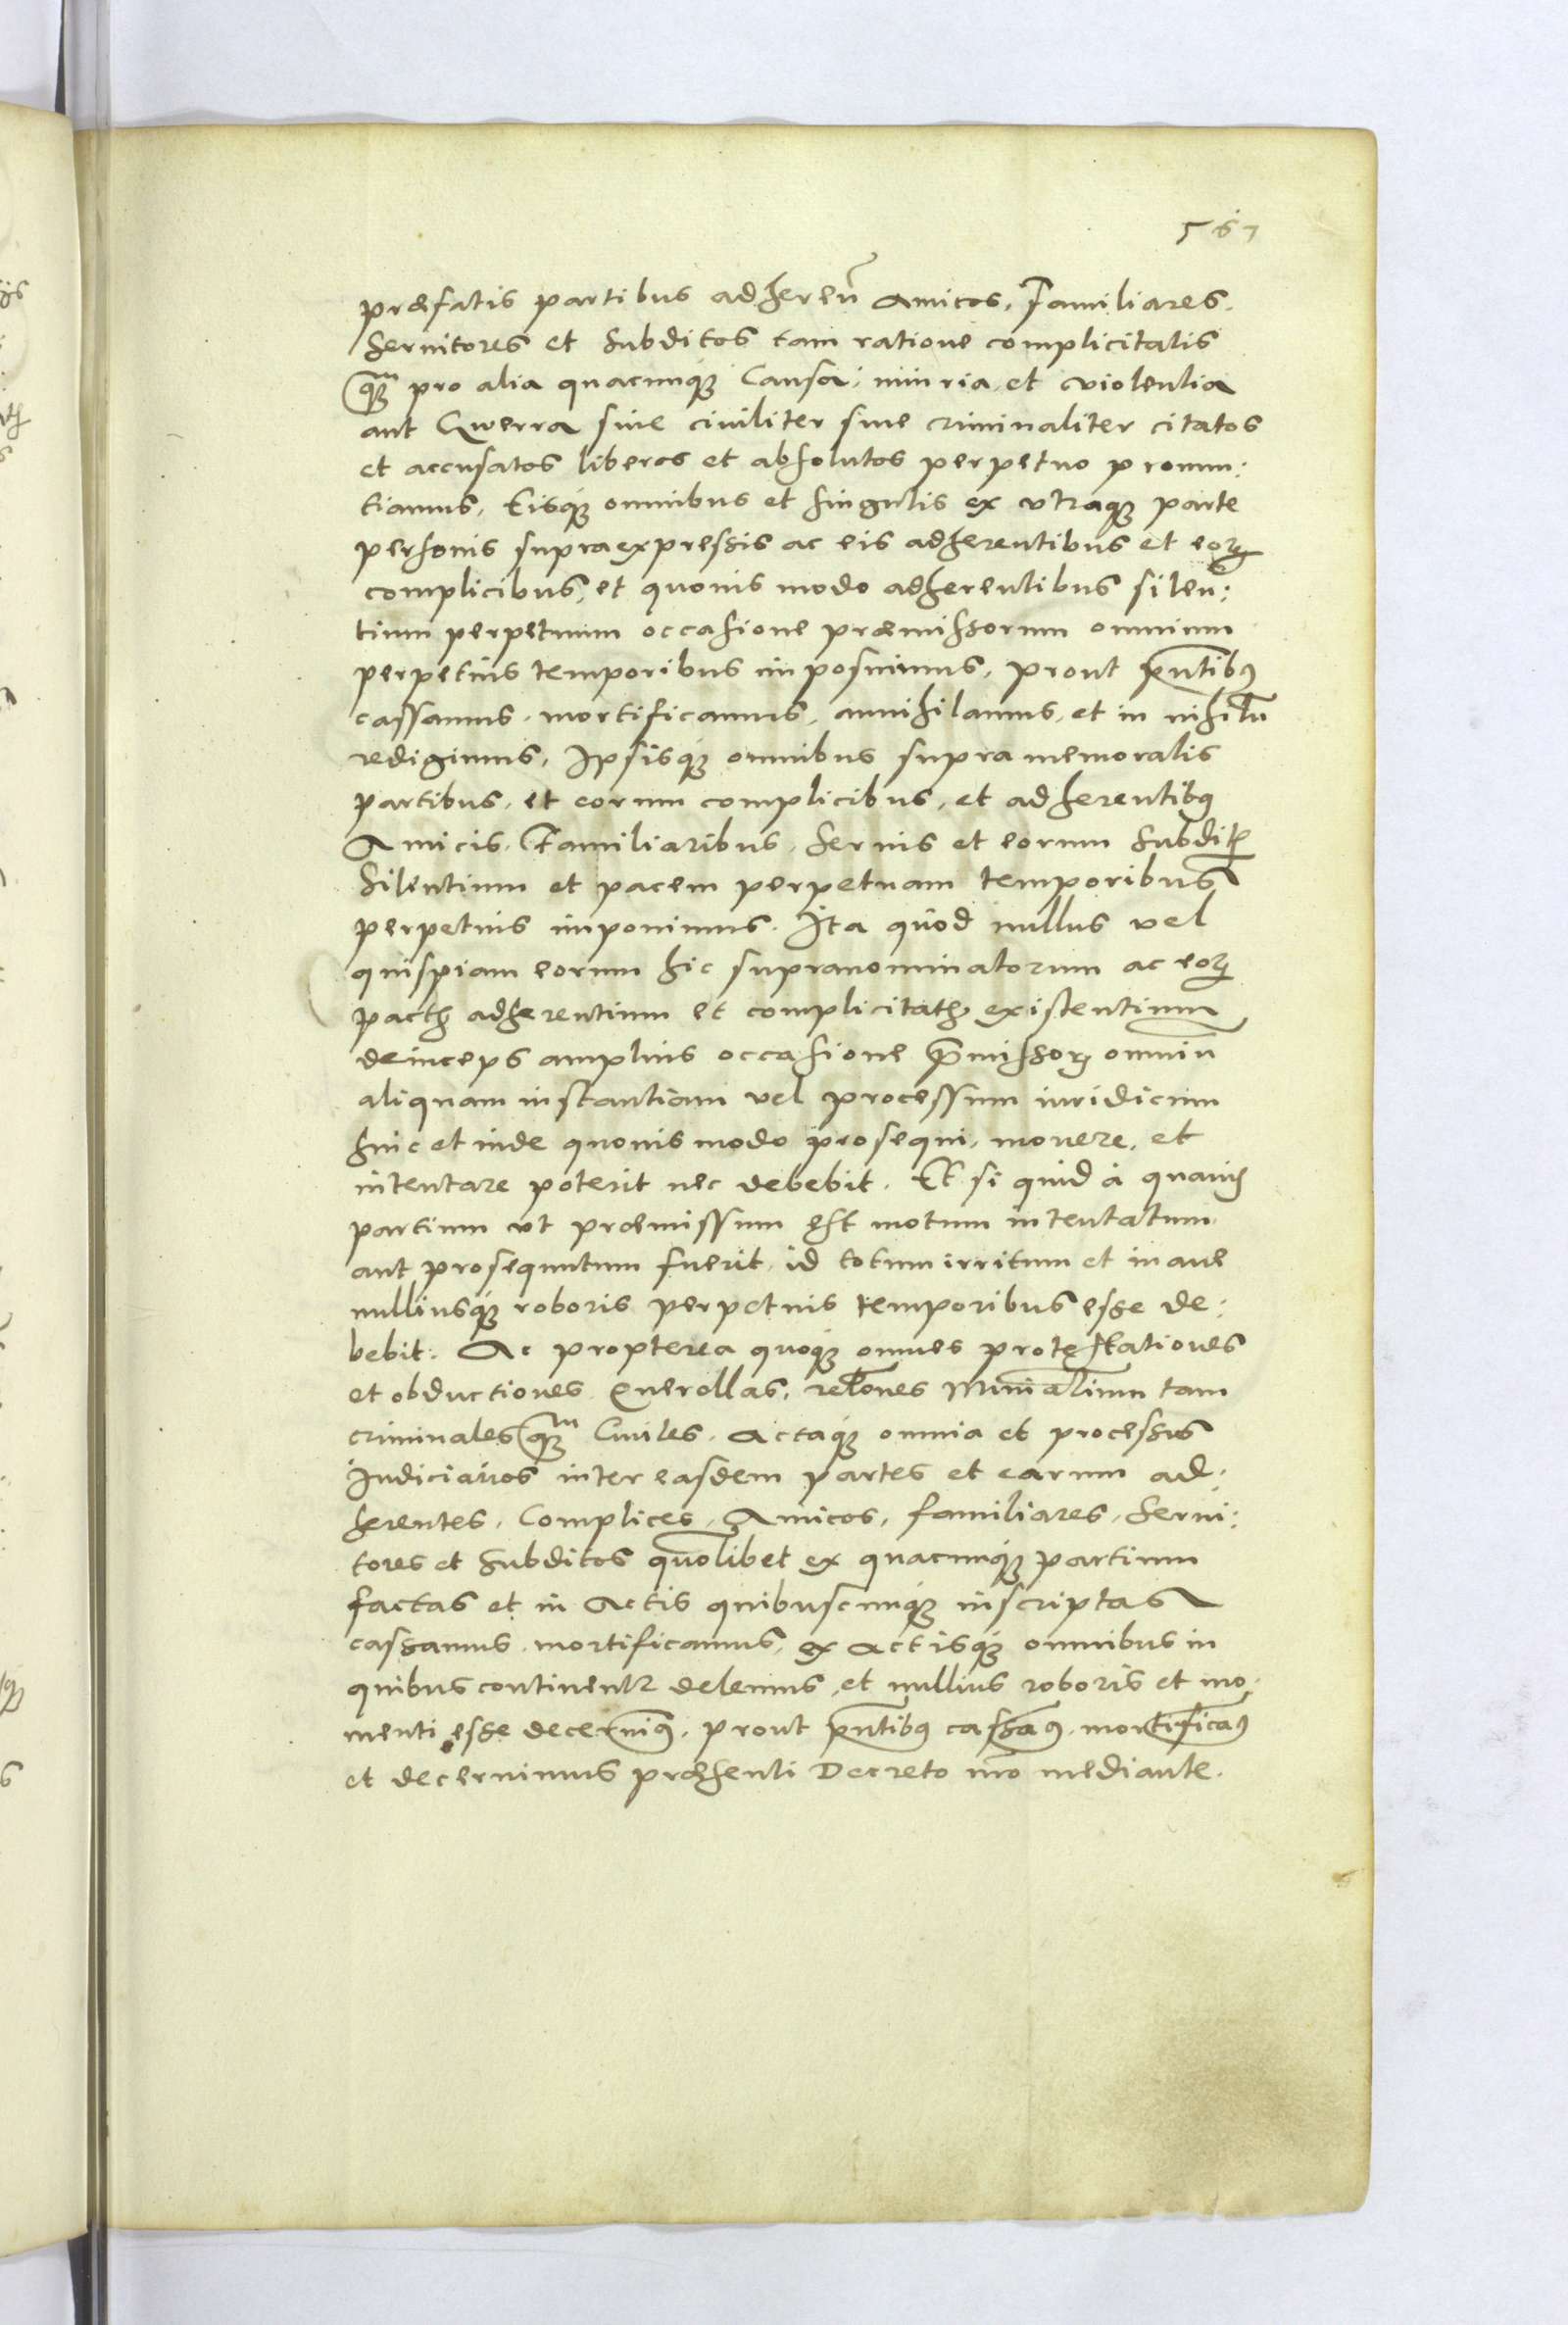 567
præfatis partibus adhereñ Amicos, Familiares.
Servitores et Subditos tam ratione complicitatis
qm̄ pro alia quacunq3 Causa, iniuria, et violentia
aut Gwerra siue ciuiliter siue criminaliter citatos
et accusatos liberos et absolutos perpetuo pronun:
tiamus. Eisq3 omnibus et singulis ex vtraq3 parte
personis supraexpressis ac eis adherentibus et eoꝝ
complicibus, et quouis modo adherentibus silen:
tium perpetuum occasione præmissorum omnium
perpetuis temporibus imposuimus, prout p̄ntibꝰ
cassamus, mortificamus, annihilamus, et in nihilū
redigimus, Ipsisq3 omnibus supra memoratis
partibus, et eorum complicibus, et adherentibꝰ
Amicis, Familiaribus, Seruis et eorum Subditꝭ
Silentium et pacem perpetuam temporibus
perpetuis imponimus. Ita quod nullus vel
quispiam eorum hic supranominatorum ac eoꝝ
partꝭ adherentium et complicitatꝭ existentium
deinceps amplius occasione p̄missoꝝ omniū
aliquam instantiam vel processum iuridicum
hinc et inde quouis modo prosequi, mouere, et
intentare poterit nec debebit. Et si quid à quauis
partium vt præmissum est motum intentatum
aut prosequutum fuerit, id totum irritum et inane
nulliusq3 roboris perpetuis temporibus esse de:
bebit: Ac propterea quoq3 omnes protestationes
et obductiones Querellas, rel̄ones Minist̄alium tam
criminales qm̄ Ciuiles, Actaq3 omnia et processus
Iudiciarios inter easdem partes et earum ad:
herentes, Complices, Amicos, familiares, Serui:
tores et Subditos quōlibet ex quacunq3 partium
factas et in Actis quibuscunq3 inscriptas
cassamus, mortificamus, ex Actisq3 omnibus in
quibus continentꝛ delemus, et nullius roboris et mo:
menti esse decernimꝰ, prout p̄ntibꝰ cassāꝰ, mortificaꝰ
et decernimus præsenti Decreto n̄ro mediante.